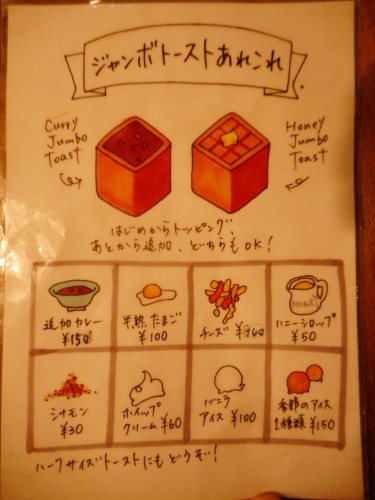 ジャンボトーストあれこれ
Curry
Jumbo
Toast
Honey
Jumbo
Toast
はじめからトッピング、
あとから追加、どちらもOK!
追加カレー
¥150
半熟たまご
¥100
チーズ
ハニーシロップ
¥50
シナモン
¥30
ホイップ
クリーム ¥60
バニラ
アイス ¥100
季節のアイス
1種類 ¥150
ハーフサイズトーストにもどうぞ!